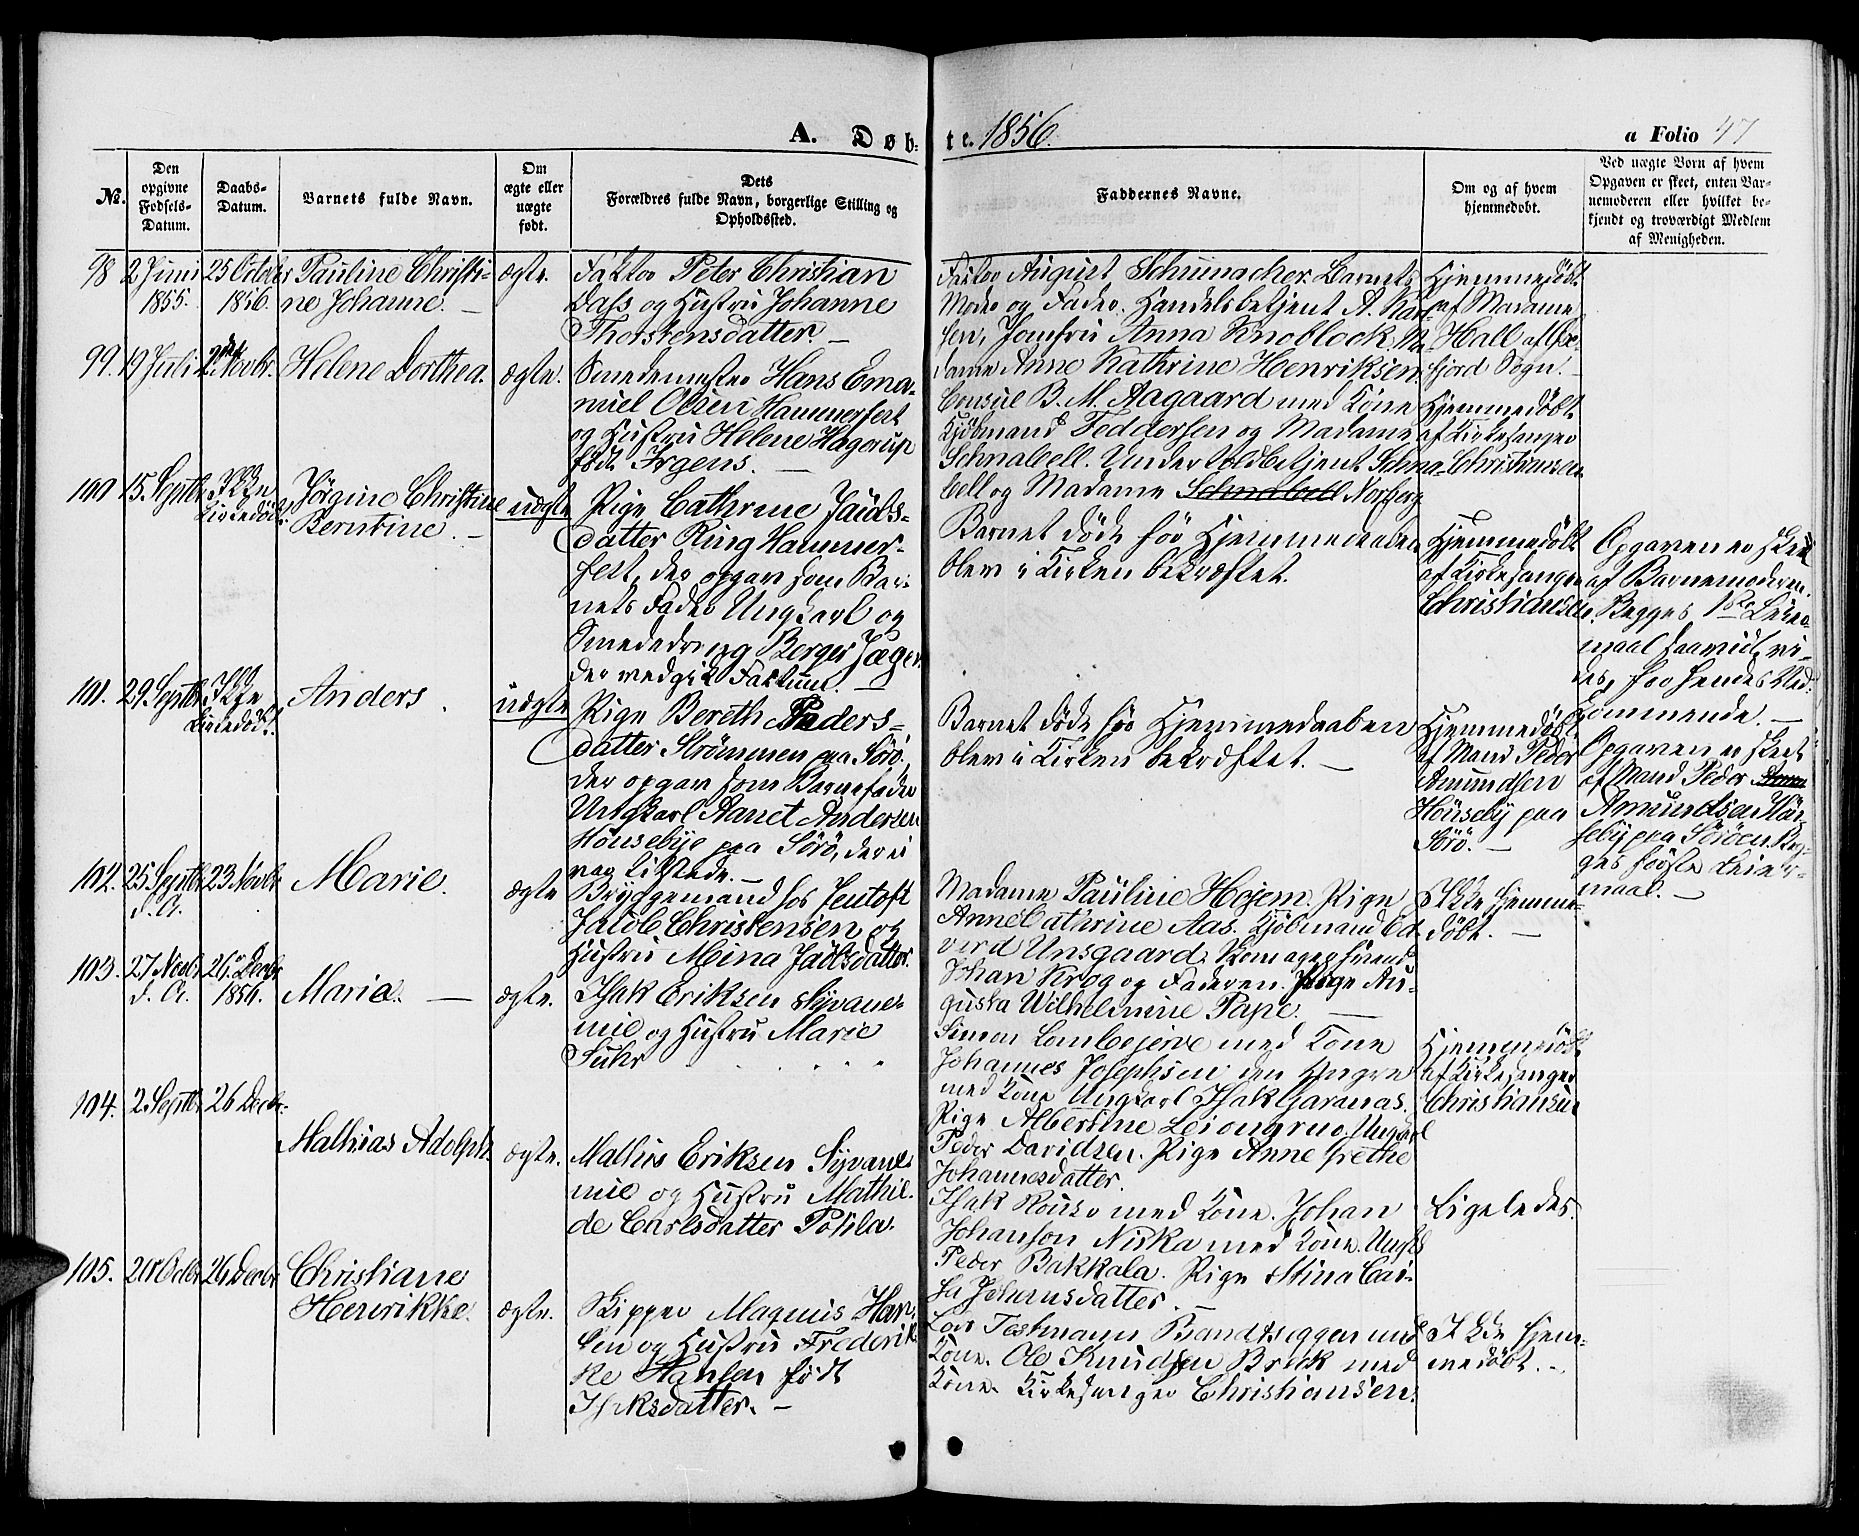 A. Døb-
te. 1856.
a Folio 47
No.
Den opgivne Fødsels-Datum.
Daabs-Datum.
Barnets fulde Navn.
Om ægte eller uægte født.
Dets Forældres fulde Navn, borgerlige Stilling og Opholdssted.
Faddernes Navne.
Om og af hvem hjemmedøbt.
Ved uægte Børn af hvem Opgaven er skeet, enten Barnemoderen eller hvilket bekjendt og troværdigt Medlem af Menigheden.
98 2 Juni 25 October Pauline Christi- ægte. Faktor Peter Christian
1855. 1856. ne Johanne. — Dass og Hustru Johanne
Thorstensdatter. —
Faktor August Schumacher. Barnets
Moder og Fader. Handelsbetjent A. Karl-
sen, Jomfru Anna Knoblock, Ma-
dame Anne Kathrine Henriksen.
Hjemmedöbt
af Madame
Hall af
fjord Sogn. —
99. 19 Juli 2 Novbr. Helene Dorthea. ægte. Smedemester Hans Ema-
nuel Olsen Hammerfest
og Hustru Helene Hagerup
födt Irgens. —
Consul B. M. Aagaard med Kone
Kjöbmand Feddersen og Madame
Schnabell. Under Toldbetjent Schna-
bell og Madame Schnabell Norberg
Hjemmedöbt
af Kirkesanger
Christiansen
100 15. Septbr. Ikke Jörgine Christine uægte Pige Cathrine
Kirkedöbt. Berntine. — datter Ring Hammer-
fest, der opgav som Bar-
nets Fader Ungkarl og
Smededreng Berger Jæger
der vedgik Faktum. —
Barnet döde för Hjemmedaaben
blev i Kirken bekræftet.
Hjemmedöbt
af Kirkesanger
Christiansen
Opgaven er skeet
af Barnemoderen.
Begges 1ste Leier-
maal saavidt vi-
des, for hendes Ved-
kommende. —
101. 29. Septbr. Ikke Anders. uægte Pige Bereth Peders-
Kirkedöbt. datter Strömmen paa Sörö,
der opgav som Barnefader
Ungkarl Andersen
Hönsebye paa Sörö, der ei
var tilstede. —
Barnet döde för Hjemmedaaben
blev i Kirken bekræftet. —
Hjemmedöbt
af Mand Peder
Amundsen
Hönseby paa
Sörö. —
Opgaven er skeet
af Mand Peder
Amundsen Hön-
seby paa Söröen. Beg-
ges förste Leier-
maal. —
102. 25 Septbr. 23 Novbr. Marie. ægte Bryggemand hos Jentoft
d. A. Jacob Christensen og
Hustru Meina
Madame Pauline Hojem. Pige
Anne Cathrine Aas. Kjöbmand Ed-
vard Unsgaard.
Johan Krog og Faderen. Pige Au-
gusta Wilhelmine Pape. —
Ikke hjemme-
döbt. —
103. 27. Novbr. 26. Decbr. Maria. — ægte. Isak Eriksen Syvane-
d. A. 1856. mie og Hustru Marie
Suhr
Simon Lombojerve med Kone
Johannes Josephsen den Yngre
med Kone Ungkarl Isak Garanas.
Pige Albertine Ungkarl
Peder Davidsen. Pige Anne Grethe
Johannesdatter.
Hjemmedöbt
af Kirkesanger
Christiansen
104. 2. Septbr. 26 Decbr. Mathias Adolph. ægte. Mathis Eriksen Syvane-
mie og Hustru Mathil-
de Carlsdatter Pokila.
Isak Rouso med Kone. Johan
Johanson Niska med Kone. Ungk.
Peder Bakkala. Pige Stina Cai-
sa Johansdatter. —
Ligeledes.
105. 20 Octbr. 26 Decbr. Christiane ægte. Skipper Magnus Han-
Henrikke. sen og Hustru Frederik-
ke Hansen födt
Isaksdatter. —
Lars Testmann Brandtseggen med
Kone. Ole Knudsen Brak med
Kone. Kirkesanger Christiansen.
Ikke hjem-
medöbt. —